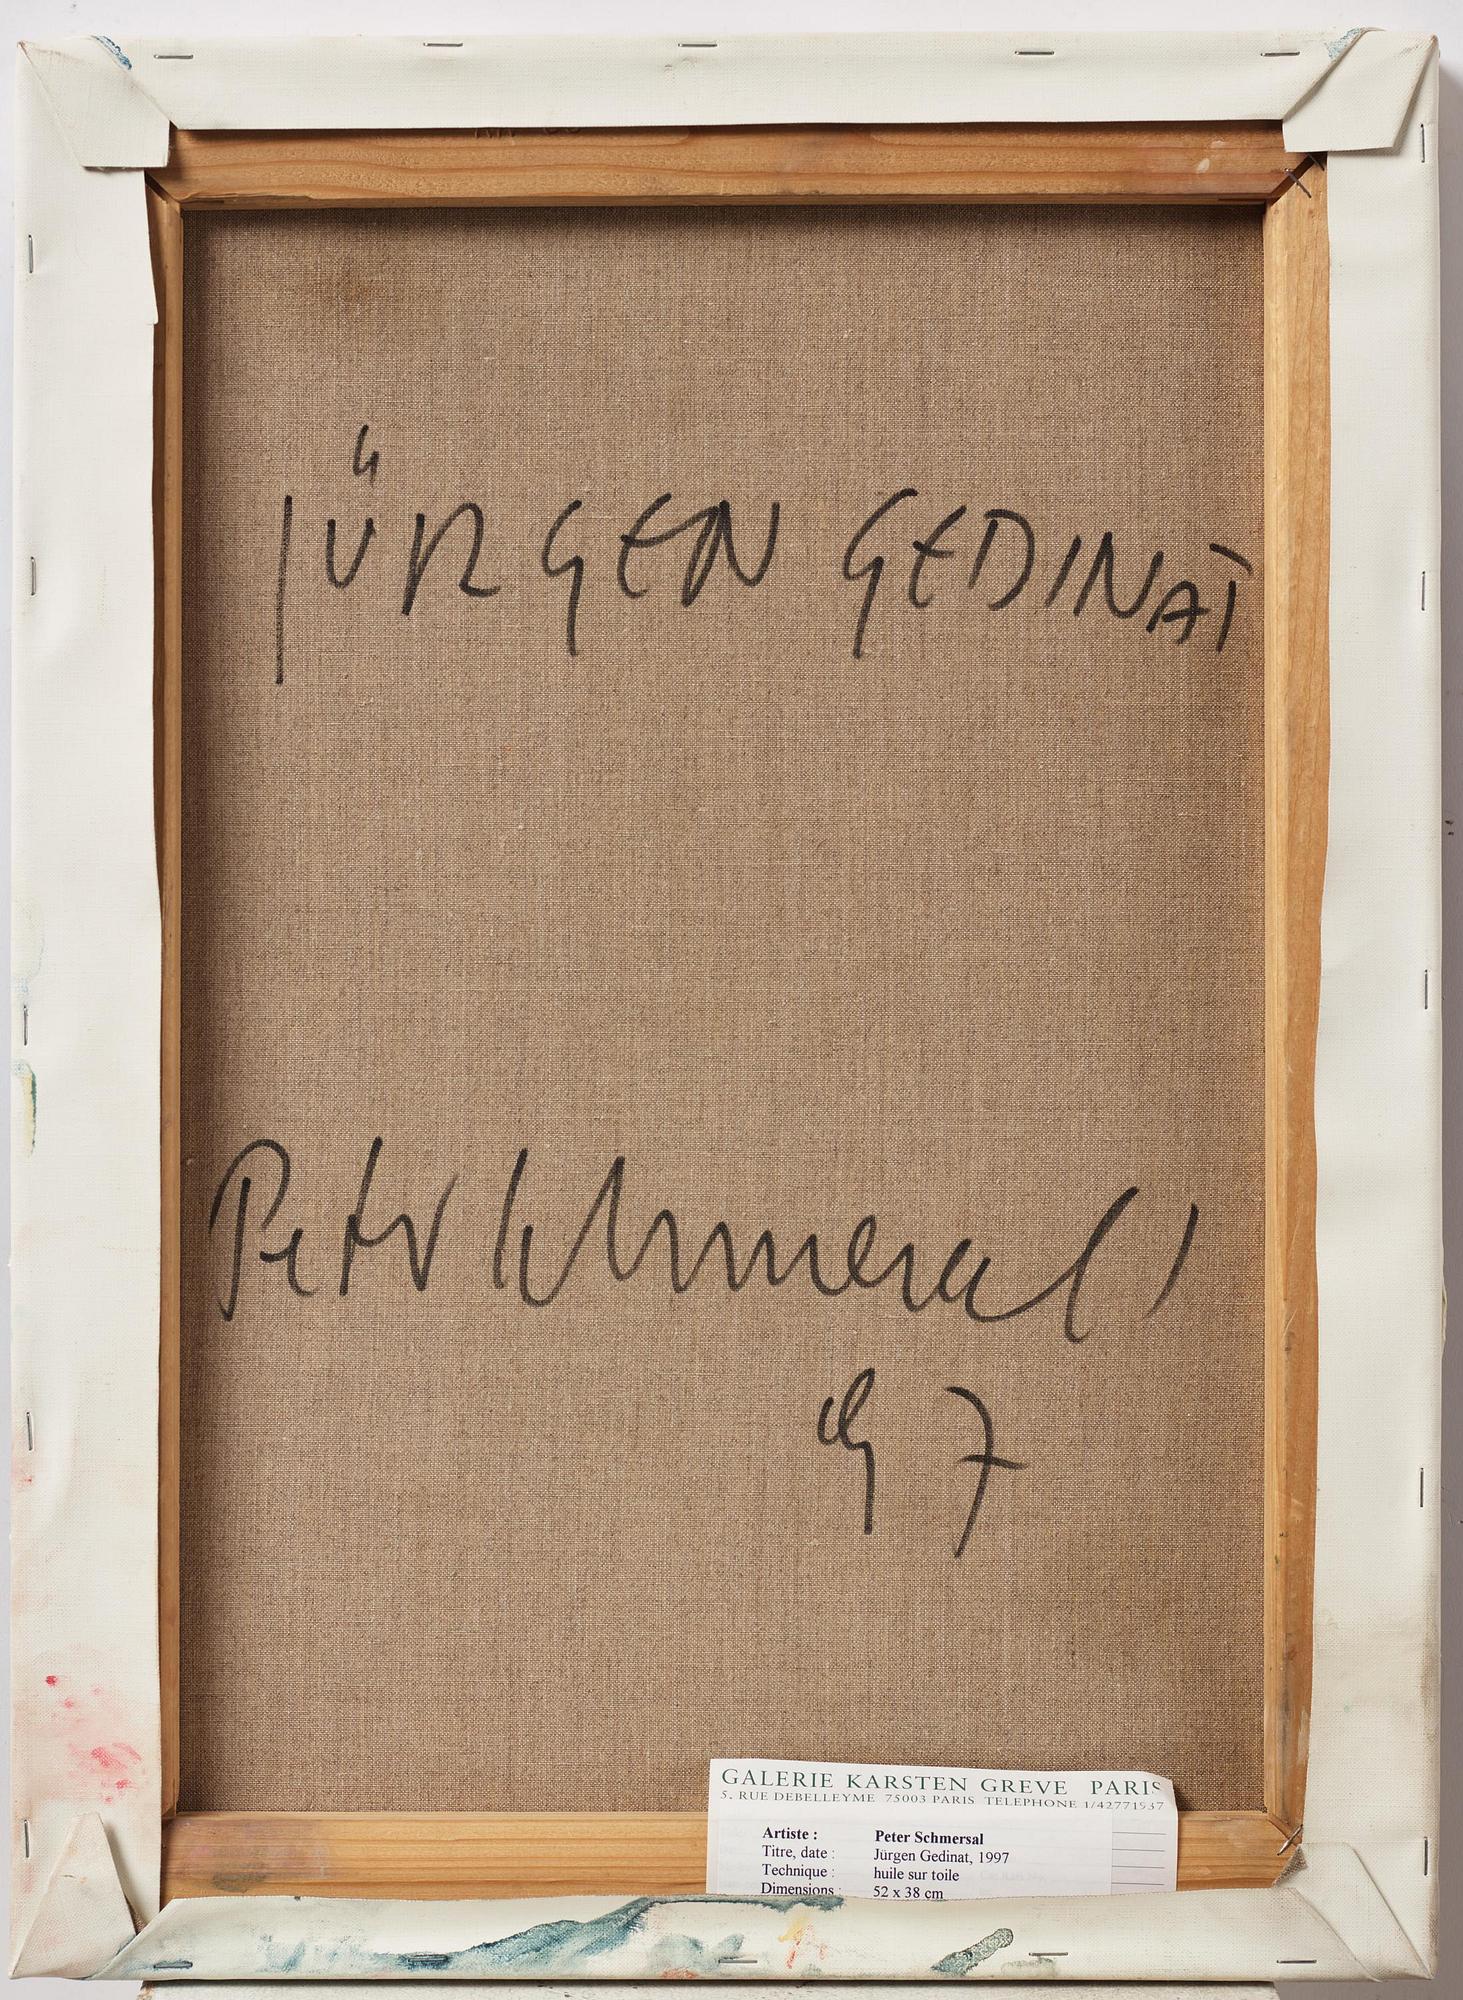 JÜRGEN GEDINAT
Peter Schmersal
97
GALERIE KARSTEN GREVE PARIS
5, RUE DEBELLEYME 75003 PARIS TELEPHONE 1/42771937
Artiste : Peter Schmersal
Titre, date : Jürgen Gedinat, 1997
Technique : huile sur toile
Dimensions : 52 x 38 cm